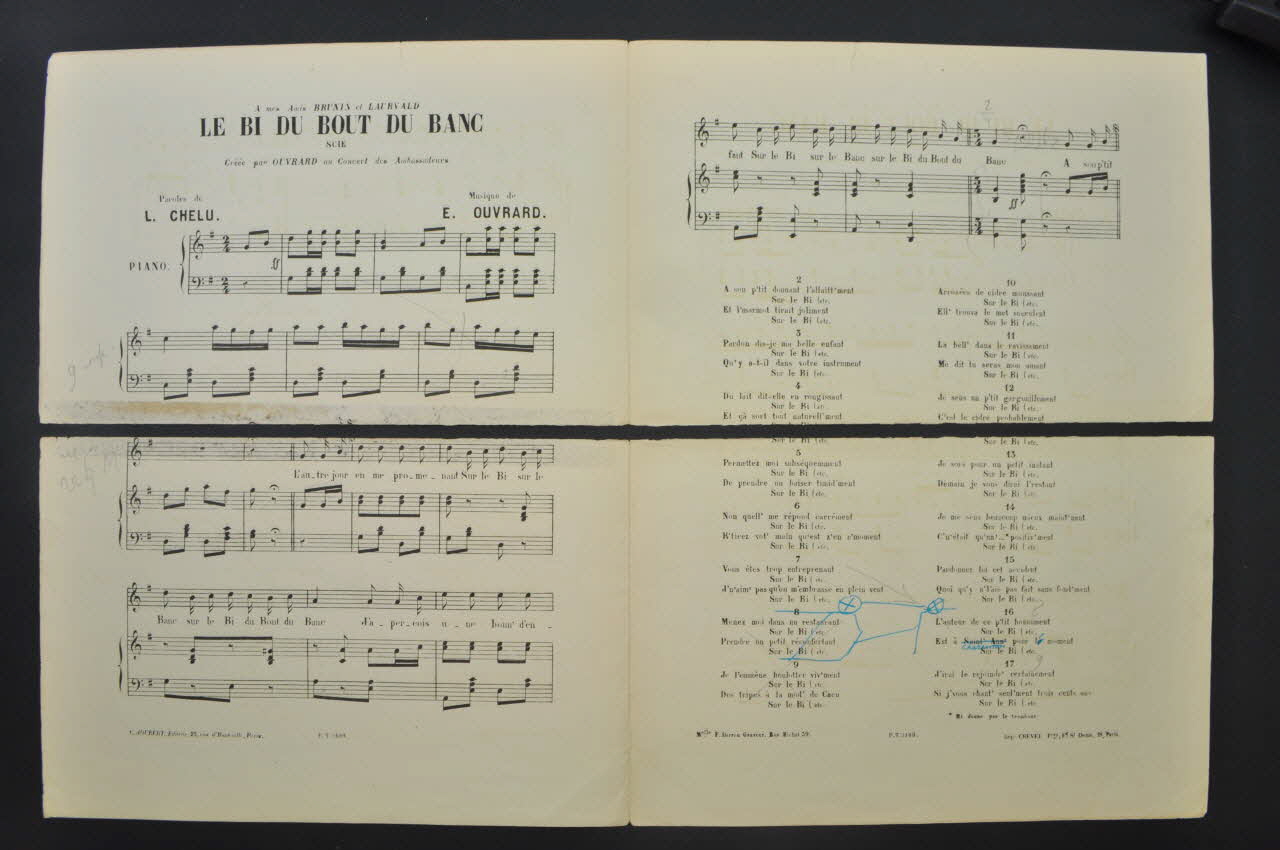 A mes Amis BRUNIN et LAURVALD
LE BI DU BOUT DU BANC
SCIE
Créée par OUVRARD au Concert des Ambassadeurs
Paroles de
L. CHELU.
Musique de
E. OUVRARD.
PIANO.
ff
L'au_tre jour en me pro_me_nant Sur le Bi sur le
Banc sur le Bi du Bout du Banc J'a_per_çois u_ne bonn' d'en_
V. JOUBERT, Editeur 25, rue d'Hauteville, Paris.
2
fant Sur le Bi sur le Banc sur le Bi du Bout du Banc A son p'tit
ff
2
A son p'tit donnant l'allait'ment
Sur le Bi (etc.
Et l'musmot tirait joliment
Sur le Bi (etc.
3
Pardon dis-je ma belle enfant
Sur le Bi (etc.
Qu'y a-t-il dans votre instrument
Sur le Bi (etc.
4
Du lait dit-elle en rougissant
Sur le Bi (etc.
Et çà sort tout naturell'ment
Sur le Bi (etc.
5
Permettez moi subséquemment
Sur le Bi (etc.
De prendre un baiser timid'ment
Sur le Bi (etc.
6
Non quell' me répond carrément
Sur le Bi (etc.
R'tirez vot' main qu'est z'en c'moment
Sur le Bi (etc.
7
Vous êtes trop entreprenant
Sur le Bi (etc.
J'n'aim' pas qu'on m'embrasse en plein vent
Sur le Bi (etc.
8
Menez moi dans un restaurant
Sur le Bi (etc.
Prendre un petit réconfortant
Sur le Bi (etc.
9
Je l'emmène boulotter viv'ment
Sur le Bi (etc.
Des tripes à la mod' de Caen
Sur le Bi (etc.
10
Arrosées de cidre moussant
Sur le Bi (etc.
Ell' trouva le met succulent
Sur le Bi (etc.
11
La bell' dans le ravissement
Sur le Bi (etc.
Me dit tu seras mon amant
Sur le Bi (etc.
12
Je sens un p'tit gargouillement
Sur le Bi (etc.
C'est le cidre probablement
Sur le Bi (etc.
13
Je sors pour un petit instant
Sur le Bi (etc.
Demain je vous dirai l'restant
Sur le Bi (etc.
14
Je me sens beaucoup mieux maint'nant
Sur le Bi (etc.
C'n'était qu'un'_* positiv'ment
Sur le Bi (etc.
15
Pardonnez lui cet accident
Sur le Bi (etc.
Quoi qu'y n'l'aie pas fait sans fond'ment
Sur le Bi (etc.
16
L'auteur de ce p'tit boniment
Sur le Bi (etc.
Est à Saint' Ann' pour l' moment
Charenton
Sur le Bi (etc.
17
J'irai le rejoindr' certainement
Sur le Bi (etc.
Si j'vous chant' seul'ment trois cents ans
Sur le Bi (etc.
* Mi donné par le trombone
F. Perrin Graveur, Rue Michel 59.
Imp. CREVEL F^res, F^g S^t Denis, 18, Paris.